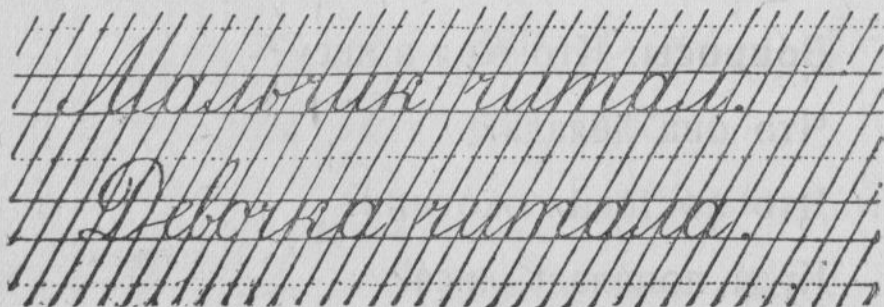 Мальчик читал.
Девочка читала.